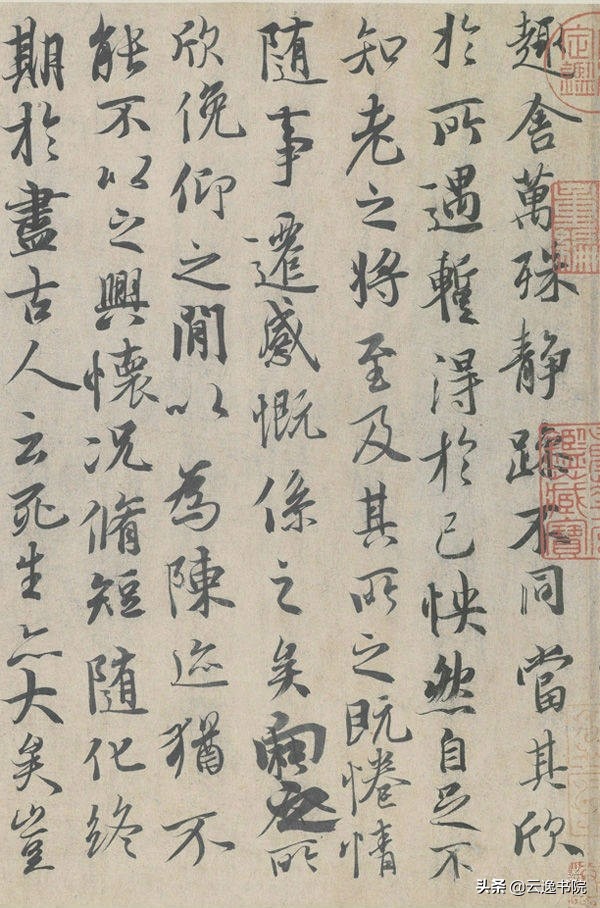 趣舍萬殊静躁不同當其欣
於所遇蹔得於己怏然自足不
知老之將至及其所之既惓情
随事遷感慨係之矣向之所
欣俛仰之閒以為陳迹猶不
能不以之興懷况脩短随化終
期於盡古人云死生亦大矣豈
头条 @云逸书院